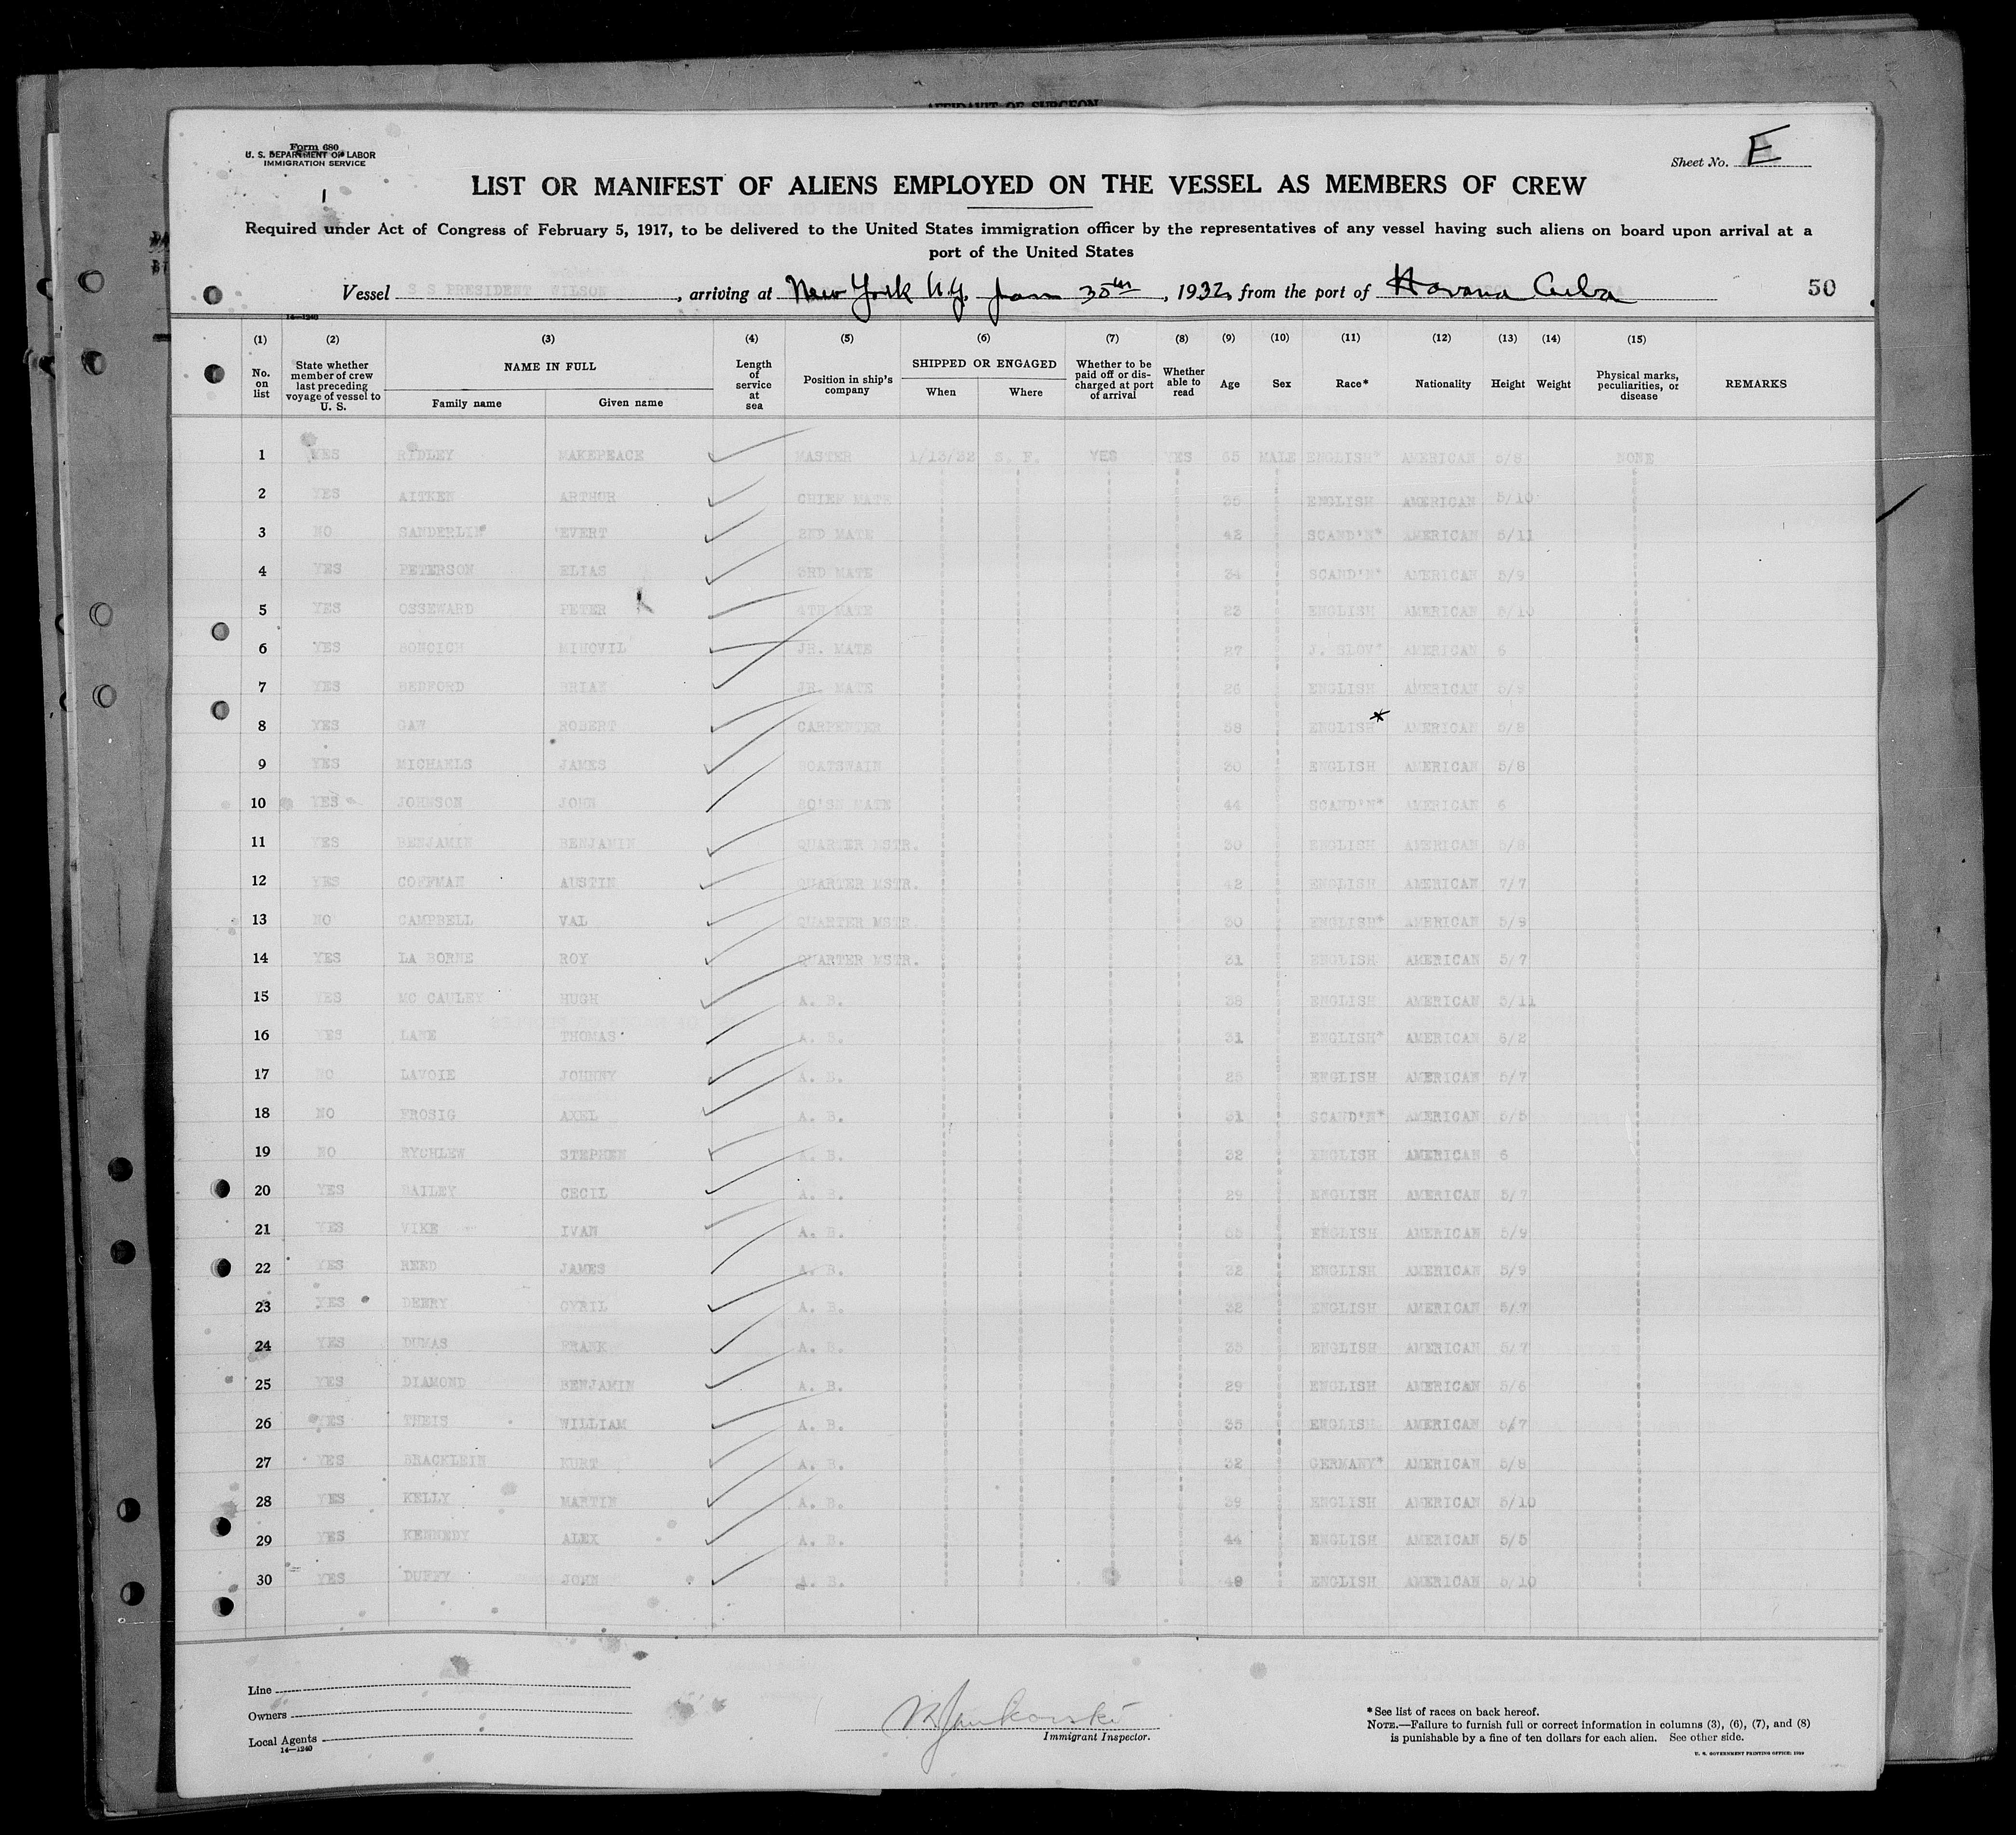 AFFIDAVIT OF SURGEON
Form 680
U. S. DEPARTMENT OF LABOR
IMMIGRATION SERVICE
Sheet No. E
LIST OR MANIFEST OF ALIENS EMPLOYED ON THE VESSEL AS MEMBERS OF CREW
Required under Act of Congress of February 5, 1917, to be delivered to the United States immigration officer by the representatives of any vessel having such aliens on board upon arrival at a
port of the United States
Vessel S S PRESIDENT WILSON, arriving at New York N.Y. Jan 30th, 1932, from the port of Havana Cuba 50
14—1240
(1) (2) (3) (4) (5) (6) (7) (8) (9) (10) (11) (12) (13) (14) (15)
No. on list State whether member of crew last preceding voyage of vessel to U. S. NAME IN FULL Family name Given name Length of service at sea Position in ship's company SHIPPED OR ENGAGED When Where Whether to be paid off or discharged at port of arrival Whether able to read Age Sex Race* Nationality Height Weight Physical marks, peculiarities, or disease REMARKS
1 YES RIDLEY MAKEPEACE MASTER 1/13/32 S. F. YES YES 65 MALE ENGLISH* AMERICAN 5/8 NONE
2 YES AITKEN ARTHUR CHIEF MATE 36 ENGLISH AMERICAN 5/10
3 NO SANDERLIN EVERT 2ND MATE 42 SCAND'N* AMERICAN 5/11
4 YES PETERSON ELIAS 3RD MATE 34 SCAND'N* AMERICAN 5/9
5 YES OSSEWARD PETER 4TH MATE 23 ENGLISH AMERICAN 5/10
6 YES BONCICH MIHOVIL JR. MATE 27 J. SLOV* AMERICAN 6
7 YES BEDFORD BRIAN JR. MATE 26 ENGLISH AMERICAN 5/9
8 YES GAW ROBERT CARPENTER 58 ENGLISH* AMERICAN 5/8
9 YES MICHAELS JAMES BOATSWAIN 30 ENGLISH AMERICAN 5/8
10 YES JOHNSON JOHN BO'SN MATE 44 SCAND'N* AMERICAN 6
11 YES BENJAMIN BENJAMIN QUARTER MSTR. 30 ENGLISH AMERICAN 5/8
12 YES COFFMAN AUSTIN QUARTER MSTR. 42 ENGLISH AMERICAN 7/7
13 NO CAMPBELL VAL QUARTER MSTR. 30 ENGLISH* AMERICAN 5/9
14 YES LA BORNE ROY QUARTER MSTR. 31 ENGLISH AMERICAN 5/7
15 YES MC CAULEY HUGH A. B. 38 ENGLISH AMERICAN 5/11
16 YES LANE THOMAS A. B. 31 ENGLISH* AMERICAN 6/2
17 NO LAVOIE JOHNNY A. B. 25 ENGLISH AMERICAN 5/7
18 NO FROSIG AXEL A. B. 31 SCAND'N* AMERICAN 5/5
19 NO RYCHLEW STEPHEN A. B. 32 ENGLISH AMERICAN 6
20 YES BAILEY CECIL A. B. 29 ENGLISH AMERICAN 5/7
21 YES VIKE IVAN A. B. 55 ENGLISH AMERICAN 5/9
22 YES REED JAMES A. B. 32 ENGLISH AMERICAN 5/9
23 YES DEERY CYRIL A. B. 32 ENGLISH AMERICAN 5/7
24 YES DUMAS FRANK A. B. 35 ENGLISH AMERICAN 5/7
25 YES DIAMOND BENJAMIN A. B. 29 ENGLISH AMERICAN 5/6
26 YES THEIS WILLIAM A. B. 35 ENGLISH AMERICAN 5/7
27 YES BRACKLEIN KURT A. B. 32 GERMANY* AMERICAN 5/8
28 YES KELLY MARTIN A. B. 39 ENGLISH AMERICAN 5/10
29 YES KENNEDY ALEX A. B. 44 ENGLISH AMERICAN 5/5
30 YES DUFFY JOHN A. B. 48 ENGLISH AMERICAN 5/10
Line
Owners
Local Agents
14—1240
Immigrant Inspector.
*See list of races on back hereof.
NOTE.—Failure to furnish full or correct information in columns (3), (6), (7), and (8)
is punishable by a fine of ten dollars for each alien. See other side.
U. S. GOVERNMENT PRINTING OFFICE: 1929